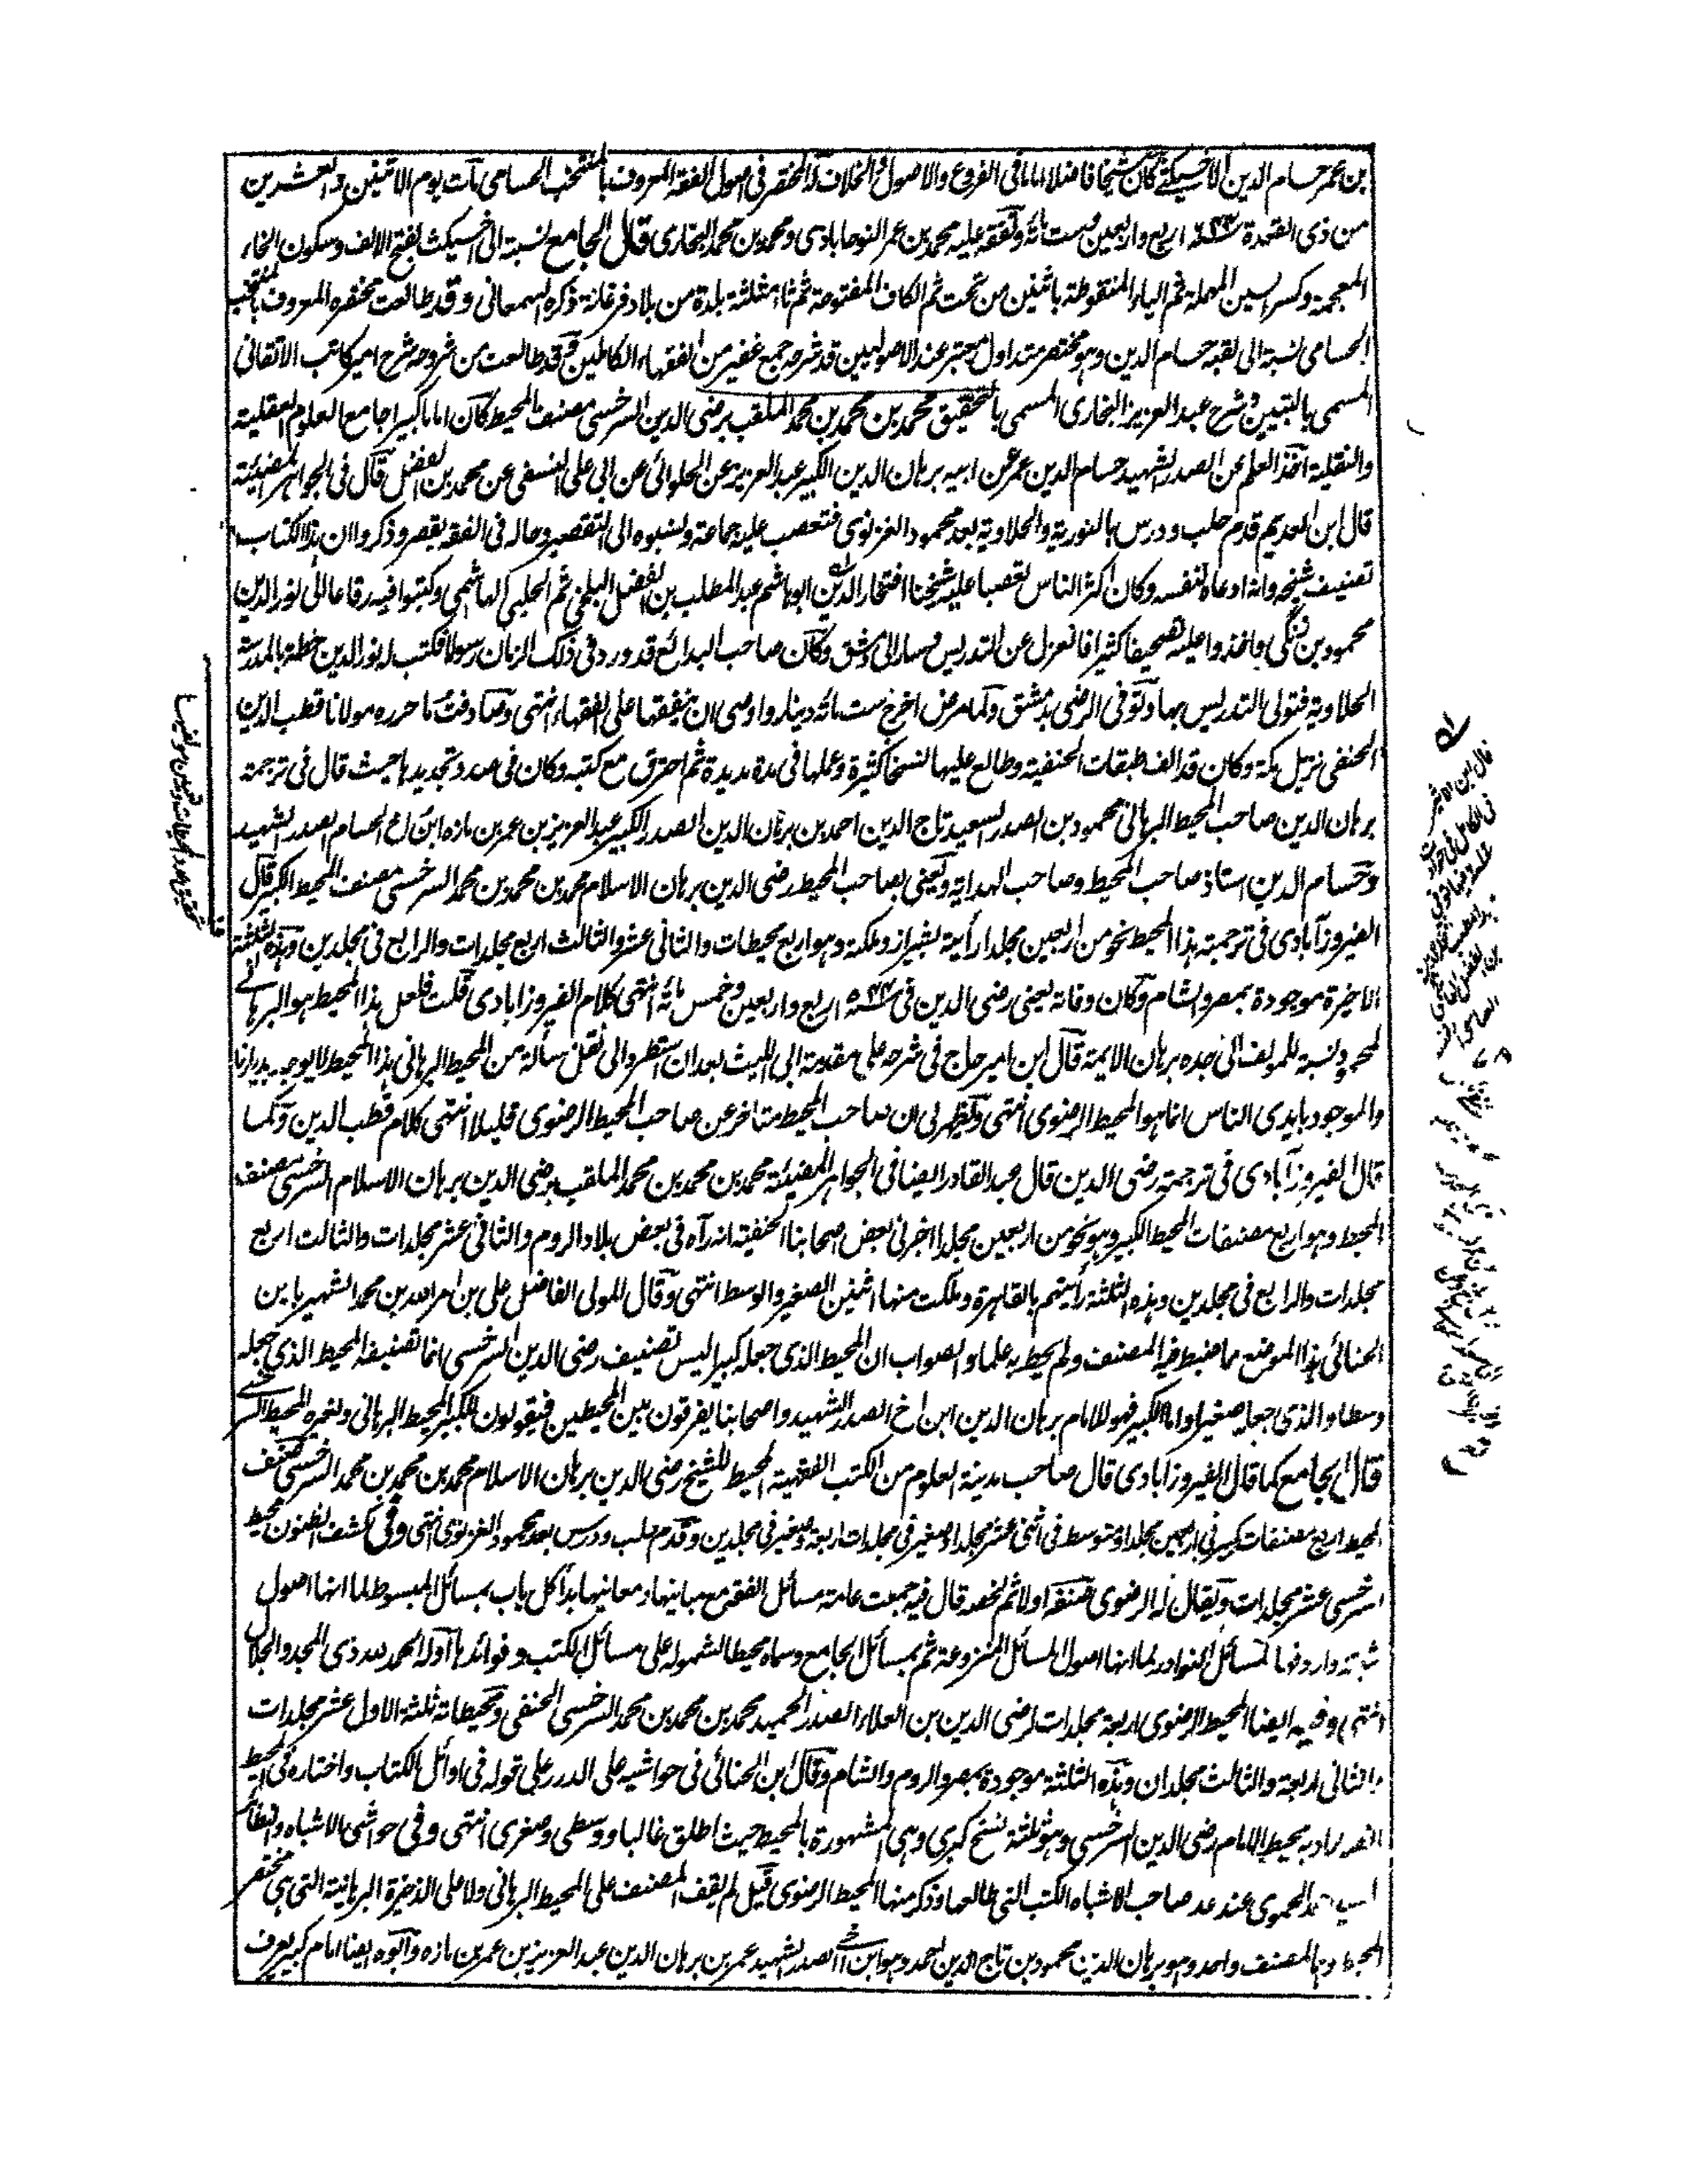 بن عمر حسام الدين الاخسيكثى كان شيخا فاضلا اماما فى الفروع والاصول والخلاف له المختصر فى اصول الفقه المعروف بالمنتخب الحسامى مات يوم الاثنين والعشرين
من ذى القعدة سنة ٦٤٤ اربع واربعين وست مائة وتفقه عليه محمد بن عمر النوحابادى ومحمد بن محمد البخارى قال الجامع نسبة الى اخسيكث بفتح الالف وسكون الخاء
المعجمة وكسر السين المهملة ثم الياء المنقوطة باثنين من تحت ثم الكاف المفتوحة ثم ثاء مثلثة بلدة من بلاد فرغانة ذكره السمعانى وقد طالعت مختصره المعروف بالمنتخب
الحسامى نسبة الى لقبه حسام الدين وهو مختصر متداول معتبر عند الاصوليين قد شرحه جمع غفير من الفقهاء الكاملين وقد طالعت من شروحه شرح امير كاتب الاتقانى
المسمى بالتبيين وشرح عبد العزيز البخارى المسمى بالتحقيق محمد بن محمد بن محمد الملقب برضى الدين السرخسى مصنف المحيط كان اماما كبيرا جامع العلوم العقلية
والنقلية اخذ العلم عن الصدر الشهيد حسام الدين عمر عن ابيه برهان الدين الكبير عبد العزيز عن الحلوائى عن ابى على النسفى عن محمد بن الفضل قال فى الجواهر المضيئة
قال ابن العديم قدم حلب ودرس بالنورية والحلاوية بعد محمود الغزنوى فتعصب عليه جماعة ونسبوه الى التقصير وحاله فى الفقه يقصر وذكروا ان هذا الكتاب
تصنيف شيخه وانه ادعاه لنفسه وكان اكثر الناس تعصبا عليه شيخنا افتخار الدين ابو هاشم عبد المطلب بن الفضل البلخى ثم الحلبى الهاشمى وكتبوا فيه رقاعا الى نور الدين
محمود بن زنگى واخذوا عليه تصحيفا كثيرا فانعزل عن التدريس وسار الى دمشق وكان صاحب البدائع قد ورد فى ذلك الزمان رسولا فكتب له نور الدين خطة بالمدرسة
الحلاوية فتولى التدريس بها وتوفى الرضى بدمشق ولما مرض اخرج ست مائة دينار واوصى ان ينفقها على الفقهاء انتهى وصادفت ما حرره مولانا قطب الدين
الحنفى نزيل مكة وكان قد الف طبقات الحنفية وطالع عليها نسخا كثيرة وعملها فى مدة مديدة ثم احترق مع كتبه وكان فى صدد تجديدها حيث قال فى ترجمة
برهان الدين صاحب المحيط البرهانى محمود بن الصدر السعيد تاج الدين احمد بن برهان الدين الصدر الكبير عبد العزيز بن عمر بن مازه ابن اخ الحسام الصدر الشهيد
وحسام الدين استاذ صاحب المحيط وصاحب الهداية ونعنى بصاحب المحيط رضى الدين برهان الاسلام محمد بن محمد بن محمد السرخسى مصنف المحيط الكبير قال
الفيروزآبادى فى ترجمته هذا المحيط نحو من اربعين مجلدا رأيته بشيراز وملكته وهو اربع محيطات والثانى عشر والثالث اربع مجلدات والرابع فى مجلدين وهذه الثلثة
الاخيرة موجودة بمصر والشام وكان وفاته يعنى رضى الدين فى سنة ٥٤٤ اربع واربعين وخمس مائة انتهى كلام الفيروزابادى قلت فلعل هذا المحيط هو البرهانى
لمحمود نسبة للمولف الى جده برهان الايمة قال ابن امير حاج فى شرحه على مقدمة ابى الليث بعد ان استطر والى نقل مسألة من المحيط البرهانى هذا المحيط لا يوجد بديارنا
والموجود بايدى الناس انما هو المحيط الرضوى انتهى ويظهر لى ان صاحب المحيط متاخر عن صاحب المحيط الرضوى قليلا انتهى كلام قطب الدين وكما
قال الفيروزآبادى فى ترجمة رضى الدين قال عبد القادر ايضا فى الجواهر المضيئة محمد بن محمد بن محمد الملقب برضى الدين برهان الاسلام السرخسى مصنف
المحيط وهو اربع مصنفات المحيط الكبير وهو نحو من اربعين مجلدا اخبرنى بعض اصحابنا الحنفية انه رآه فى بعض بلاد الروم والثانى عشر مجلدات والثالث اربع
مجلدات والرابع فى مجلدين وهذه الثلثة رأيتهم بالقاهرة وملكت منها اثنين الصغير والوسط انتهى وقال المولى الفاضل على بن امر الله بن محمد الشهير بابن
الحنائى هذا الموضع مما خبط فيه المصنف ولم يحط به علما والصواب ان المحيط الذى جعله كبيرا ليس تصنيف رضى الدين السرخسى انما تصنيفه المحيط الذى جعله
وسطا والذى جعله صغيرا واما الكبير فهو للامام برهان الدين ابن اخ الصدر الشهيد واصحابنا يفرقون بين المحيطين فيقولون للكبير المحيط البرهانى ولغيره المحيط السرخسى
قال الجامع كما قال الفيروزابادى قال صاحب مدينة العلوم من الكتب الفقهية المحيط للشيخ رضى الدين برهان الاسلام محمد بن محمد بن محمد السرخسى مصنف
المحيط اربع مصنفات كبير فى اربعين مجلدا ومتوسط فى اثنى عشر مجلدا وصغير فى مجلدات اربعة وصغير فى مجلدين وقدم حلب ودرس بعد محمود الغزنوى انتهى وفى كشف الظنون محيط
السرخسى عشر مجلدات ويقال له الرضوى صنفه اولا ثم لخصه قال فيه جمعت عامة مسائل الفقه مع مبانيها ومعانيها بدأ كل باب بمسائل المبسوط لما انها اصول
واردفها بمسائل النوادر لما انها اصول المسائل المنزوعة ثم بمسائل الجامع وسماه محيطا لشموله على مسائل الكتب وفوائدها اوله الحمد لله ذى المجد والجلال
انتهى وفيه ايضا المحيط الرضوى اربعة مجلدات لرضى الدين بن العلاء الصدر الحميد محمد بن محمد بن محمد السرخسى الحنفى ومحيطاته ثلثة الاول عشر مجلدات
والثانى اربعة والثالث مجلدان وهذه الثلثة موجودة بمصر والروم والشام وقال ابن الحنائى فى حواشيه على الدرر على قوله فى اوائل الكتاب واختاره فى المحيط
المراد به محيط الامام رضى الدين السرخسى وهو ثلثة نسخ كبرى وهى المشهورة بالمحيط حيث اطلق غالبا ووسطى وصغرى انتهى وفى حواشى الاشباه والنظائر
الحموى عند عد صاحب الاشباه الكتب التى طالعها وذكر منها المحيط الرضوى قيل لم يقف المصنف على المحيط البرهانى ولا على الذخيرة البرهانية التى هى مختصر
المحيط المصنف واحد وهو برهان الدين محمود بن تاج الدين احمد وهو ابن اخى الصدر الشهيد عمر بن برهان الدين عبد العزيز بن عمر بن مازه وابوه ايضا امام كبير يعرف
قال ابن الاثير
فى الكامل فى حوادث